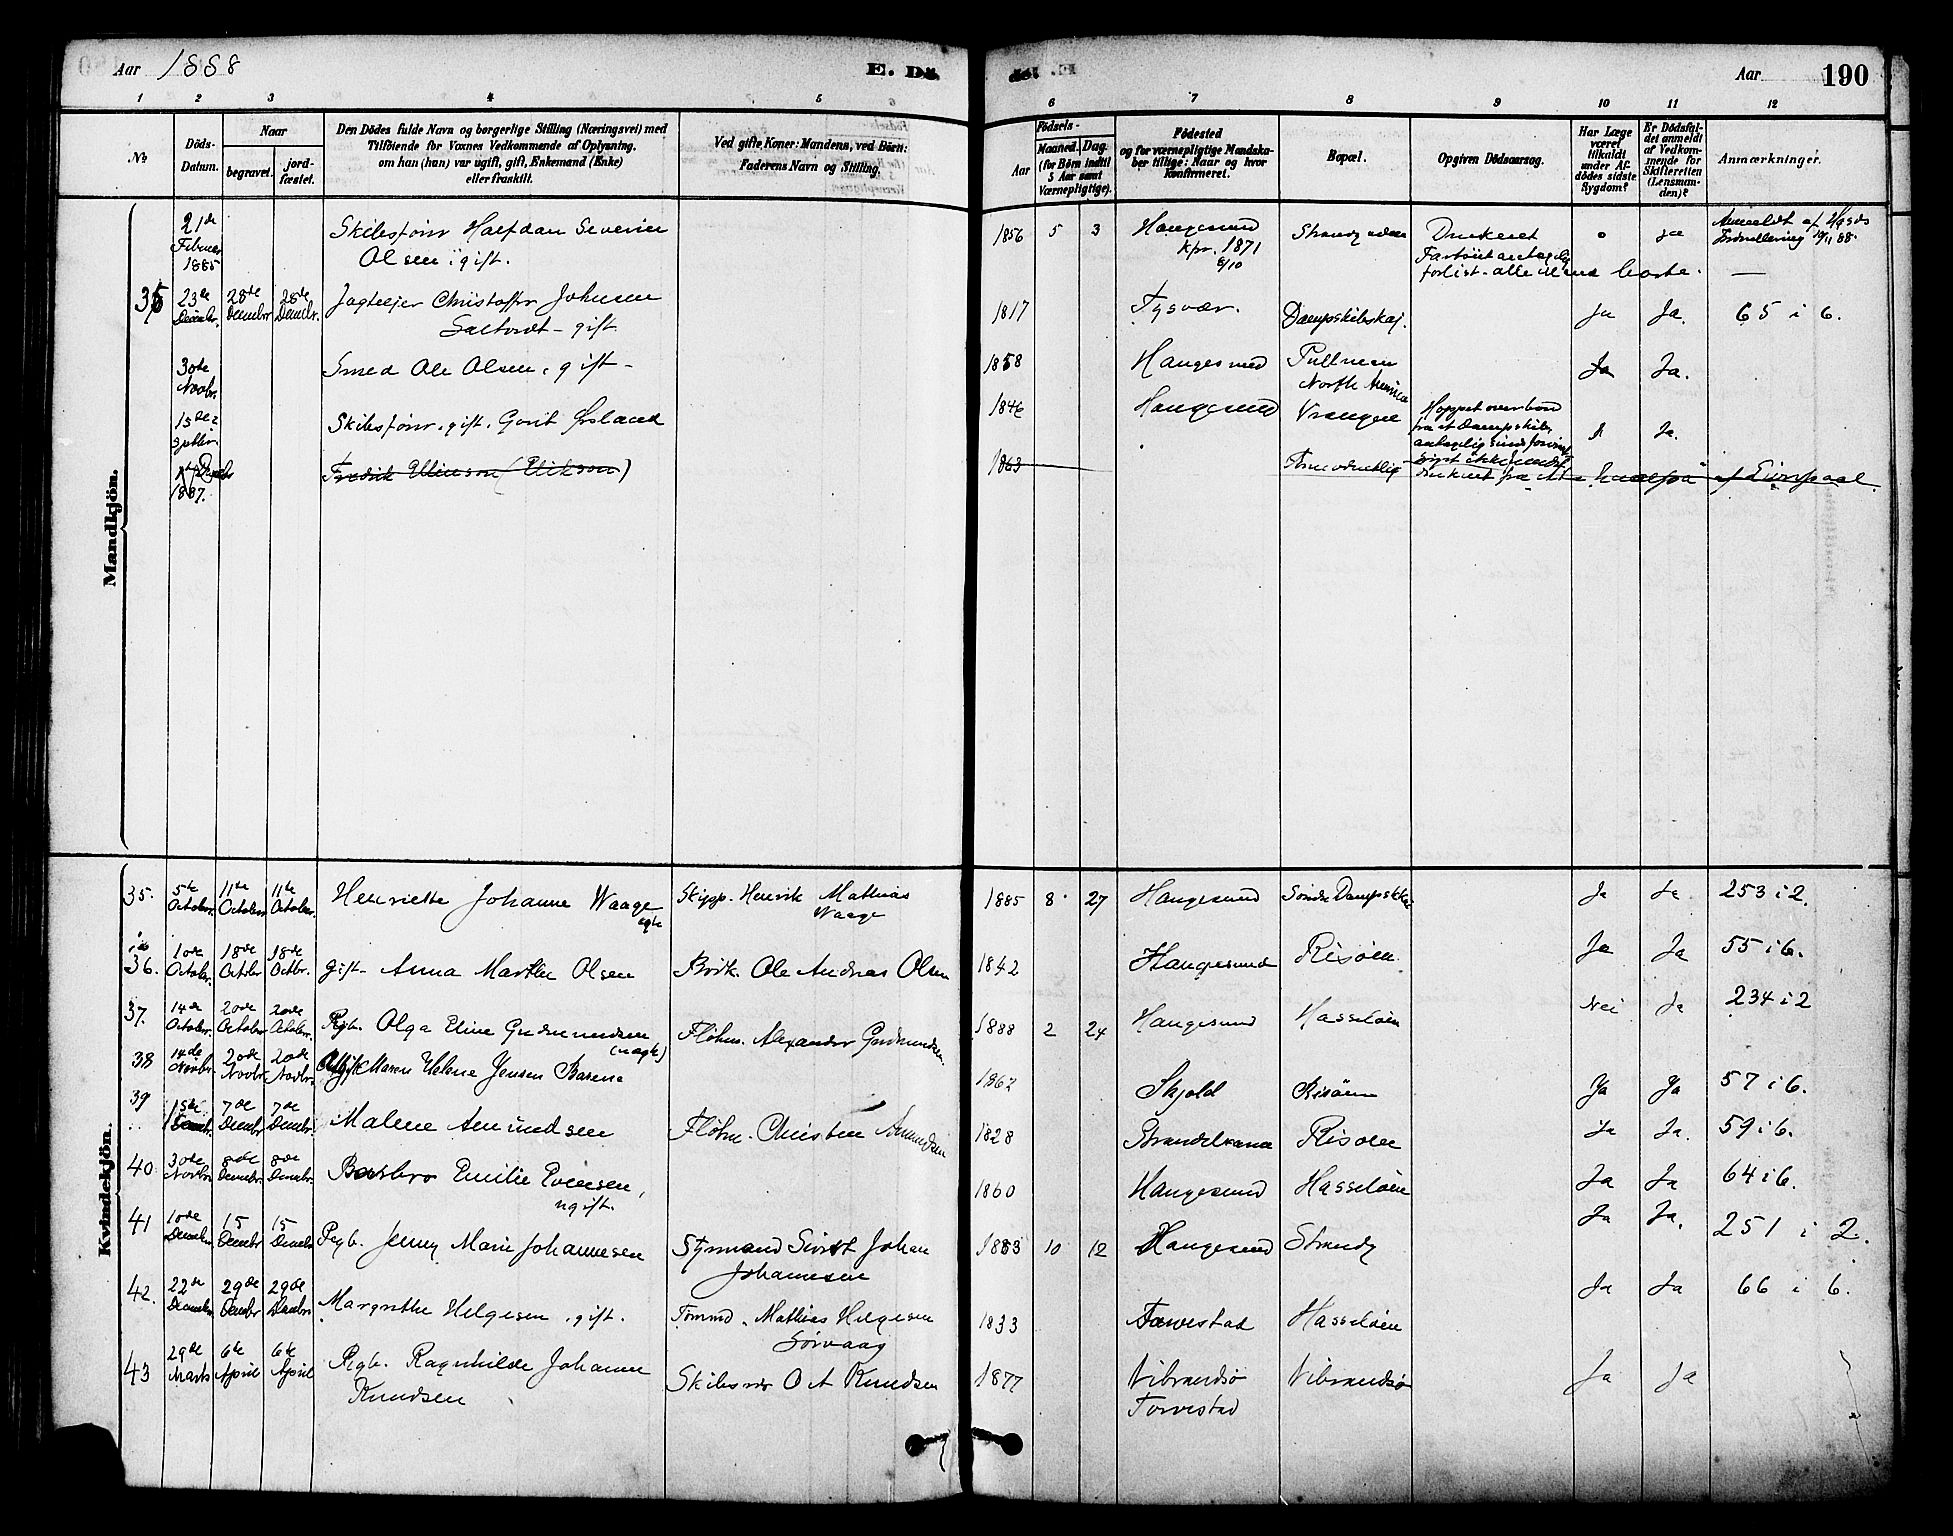 Aar 1888
E. Dö
döe
Aar 190
1 2 3 4 5 6 7 8 9 10 11 12
No
Döds-Datum.
Naar
begravet.
jord-fæstet.
Den Dödes fulde Navn og borgerlige Stilling (Næringsvei) med
Tilföiende for Voxnes Vedkommende af Oplysning,
om han (hun) var ugift, gift, Enkemand (Enke)
eller fraskilt.
Ved gifte Koner: Mandens, ved Börn:
Faderens Navn og Stilling.
Födsels-
Aar
Maaned. Dag
(for Börn indtil
5 Aar samt
Værnepligtige).
Födested
og for værnepligtige Mandska-
ber tillige: Naar og hvor
Konfirmeret.
Bopæl.
Opgiven Dödsaarsag.
Har Læge
været
tilkaldt
under Af-
dödes sidste
Sygdom?
Er Dödsfal-
det anmeldt
af Vedkom-
mende for
Skifteretten
(Lensman-
den)?
Anmærkninger.
Mandkjön.
21de Februar 1885 Skibsförer Halfdan Severin Olsen, gift. 1856 5 3 Haugesund kfr. 1871 8/10 Druknet o ja
forlist - alle Mand borte. —
36 23de Decembr. 28de Decembr 28de Decembr. Jagteejer Christoffer Johnsen gift 1817 Tysvær. Dampskibskaj. Ja Ja. 65 i 6.
30de Novbr. Smed Ole Olsen, gift - 1858 Haugesund Pullman North America Ja Ja.
15de Septbr. Skibsförer, gift, Gorit Örsland 1846 Haugesund Vrangen Hoppet overbord fra et Dampskib Ja.
1887. Fredrik (Erikson) 1863
Kvindekjön.
35. 5te October. 11te October 11te October. Henriette Johanne Waage egte Skipp. Henrik Mathias Waage 1885 8 27 Haugesund Söndre Dampskk Ja Ja. 253 i 2.
36. 10de October. 18de Octobr 18de Octbr. gift - Anna Marthe Olsen Ole Andreas Olsen 1842 Haugesund Risöen. Ja Ja 55 i 6.
37. 14de October. 20de October 20de October. Pgb. Olga Eline Gudmundsen (uægte) Flöhm. Alexander Gudmundsen 1888 2 24 Haugesund Hasselöen Nei Ja 234 i 2
38 14de Novbr. 20de Novbr. 20de Novbr. Maren Helene Jensen 1862 Skjold Risöen Ja Ja 57 i 6.
39 1ste 7de Decmbr 7de Decmbr. Malene Amundsen Flöhm. Christen Amundsen 1828 Risöen Ja Ja. 59 i 6.
40 30de Novbr 8de Decmbr. 8de Decmbr. Barbro Emilie Evensen, ugift. 1860 Haugesund Hasselöen Ja Ja 64 i 6.
41 10de Decmbr. 15 Decmbr 15 Decmbr Pgb. Jenny Marie Johannesen Styrmand Sivert Johan Johannesen 1883 10 12 Haugesund Strandg Ja Ja. 251 i 2.
42. 22de Decmbr. 29de Decmbr 29de Decmbr. Margrethe Helgesen, gift. Tömmd. Mathias Helgesen Sörvaag 1833 Torvestad Hasselöen Ja Ja 66 i 6.
43 29de Marts 6te April 6te April Pgb. Ragnhilde Johanne Knudsen Knudsen 1877 Vibrandsö Torvestad Vibrandsö Ja Ja